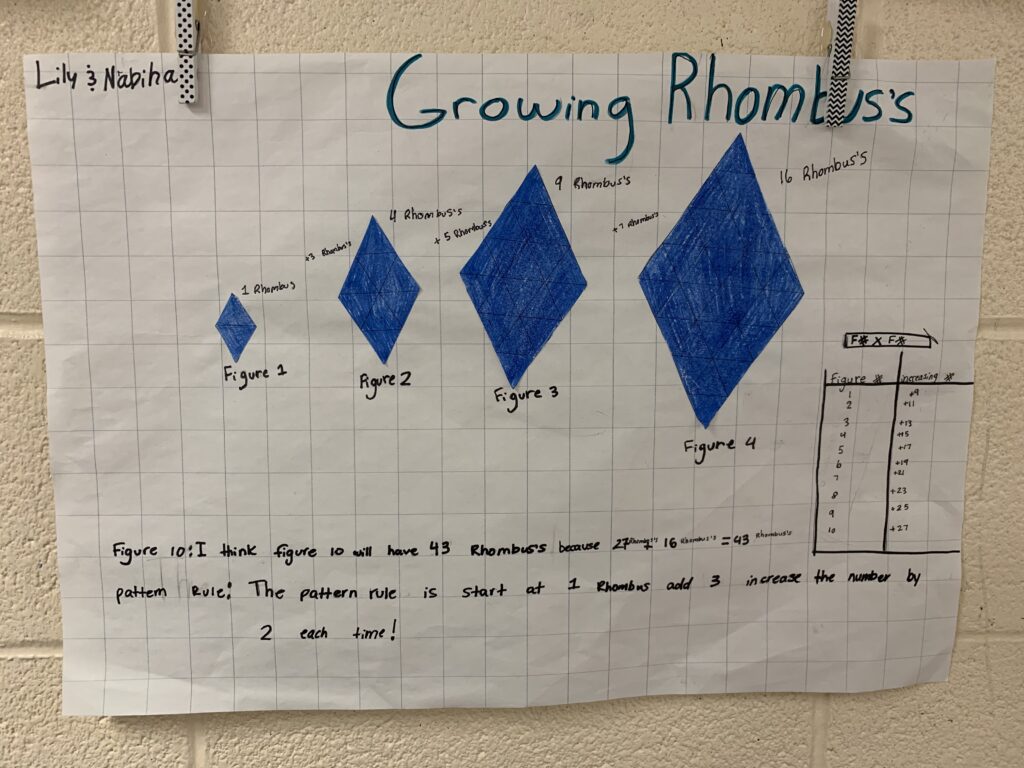 Lily & Nabiha
Growing Rhombus's
1 Rhombus
+3 Rhombus's
4 Rhombus's
+ 5 Rhombus's
9 Rhombus's
+7 Rhombus's
16 Rhombus's
Figure 1
Figure 2
Figure 3
Figure 4
F# X F#
Figure # increasing #
1 +9
2 +11
3 +13
4 +15
5 +17
6 +19
7 +21
8 +23
9 +25
10 +27
Figure 10: I think figure 10 will have 43 Rhombus's because 27 Rhombus's + 16 Rhombus's = 43 Rhombus's
pattern Rule: The pattern rule is start at 1 Rhombus add 3 increase the number by
2 each time!